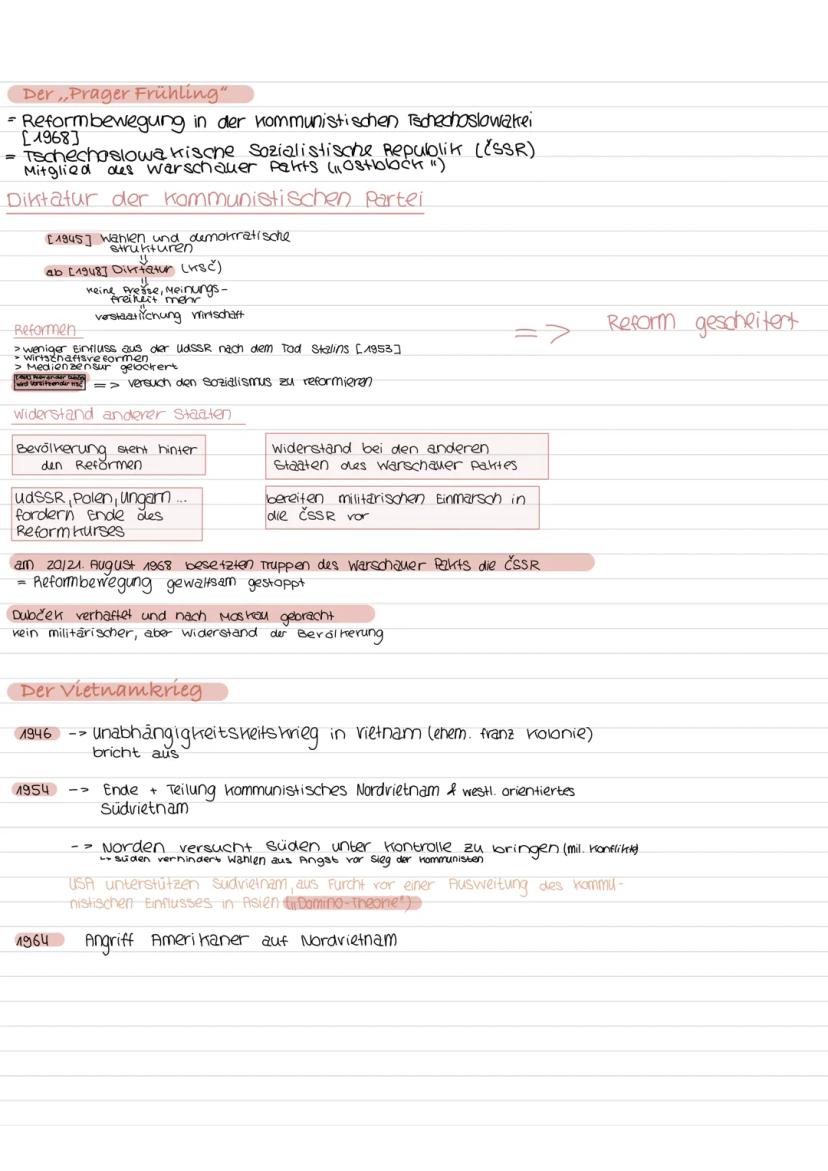 Der „Prager Frühling"
= Reformbewegung in der kommunistischen Tschechoslowakei
[1968]
= Tschechoslowakische Sozialistische Republik (ČSSR)
Mitglied des Warschauer Pakts („Ostblock")
Diktatur der kommunistischen Partei
[1945] Wahlen und demokratische
strukturen
ab [1948] Diktatur (KSČ)
keine Presse, Meinungs-
freiheit mehr
verstaatlichung Wirtschaft
=> Reform gescheitert
Reformen
> weniger Einfluss aus der UdSSR nach dem Tod Stalins [1953]
> Wirtschaftsreformen
> Medienzensur gelockert
wird Vorsitzender KSČ => versuch den Sozialismus zu reformieren
Widerstand anderer Staaten
Bevölkerung steht hinter
den Reformen
Widerstand bei den anderen
Staaten des Warschauer Paktes
UdSSR, Polen, Ungarn ...
fordern Ende des
Reformkurses
bereiten militärischen Einmarsch in
die ČSSR vor
am 20/21. August 1968 besetzten Truppen des Warschauer Pakts die ČSSR
= Reformbewegung gewaltsam gestoppt
Dubček verhaftet und nach Moskau gebracht
kein militärischer, aber Widerstand der Bevölkerung
Der Vietnamkrieg
1946 -> Unabhängigkeitskeitskrieg in Vietnam (ehem. franz Kolonie)
bricht aus
1954 -> Ende + Teilung kommunistisches Nordvietnam & westl. orientiertes
Südvietnam
-> Norden versucht Süden unter Kontrolle zu bringen (mil. Konflikt)
↳ Süden verhindert Wahlen aus Angst vor Sieg der Kommunisten
USA unterstützen Südvietnam, aus Furcht vor einer Ausweitung des kommu-
nistischen Einflusses in Asien („Domino-Theorie")
1964 Angriff Amerikaner auf Nordvietnam